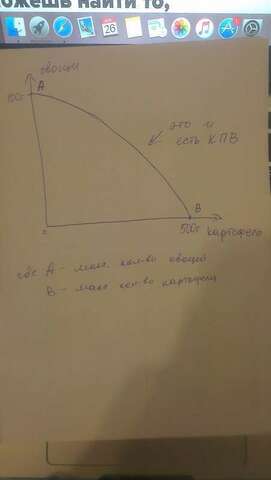 ожешь найти то,
овощи
A
100т
это и
есть КПВ
B
500т картофель
где A - макс. кол-во овощей
B - макс кол-во картофеля